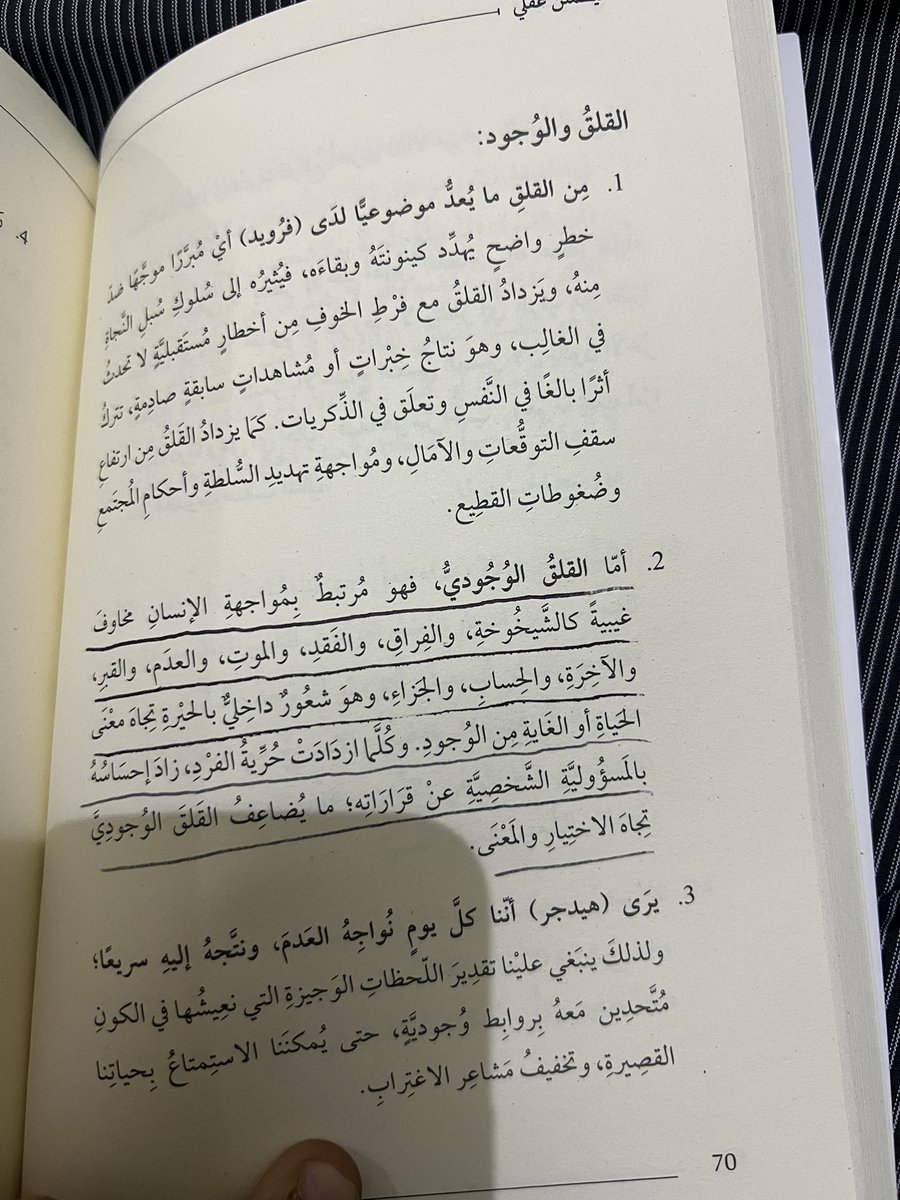 عقلي
القلقُ والوُجود:
1. مِن القلقِ ما يُعدُّ موضوعيًّا لدَى (فرُويد) أيْ مُبرَّرًا موجَّهًا ضدَّ
خطرٍ واضحٍ يُهدِّد كينونتَهُ وبقاءَه، فيُثيرُه إلى سُلوكِ سُبلِ النَّجاةِ
مِنهُ، ويَزدادُ القلقُ مع فرْطِ الخوفِ مِن أخطارٍ مُستَقبليَّةٍ لا تحدثُ
في الغالِب، وهوَ نتاجُ خِبْراتٍ أو مُشاهداتٍ سابقةٍ صادِمةٍ، تتركُ
أثرًا بالغًا في النَّفسِ وتعلَق في الذِّكريات. كمَا يزدادُ القَلقُ مِن ارتفاعِ
سقفِ التوقُّعاتِ والآمَالِ، ومُواجهةِ تهديدِ السُّلطةِ وأحكامِ المُجتَمعِ
وضُغوطاتِ القطِيع.
2. أمّا القلقُ الوُجُوديُّ، فهو مُرتبطٌ بِمُواجهةِ الإنسانِ مخاوفَ
غيبيةً كالشَّيخُوخةِ، والفِراقِ، والفَقدِ، والموتِ، والعدَمِ، والقبرِ،
والآخِرَةِ، والحِسابِ، والجَزاءِ، وهوَ شعُورٌ داخِليٌّ بالحيْرةِ تِجاهَ معْنَى
الحَياةِ أو الغَايةِ مِن الوُجودِ. وكُلَّما ازدَادَتْ حُرِّيةُ الفرْدِ، زادَ إحسَاسُهُ
بالمَسؤُوليَّةِ الشَّخصِيَّةِ عنْ قرَارَاتِه؛ ما يُضاعِفُ القَلقَ الوُجودِيَّ
تِجَاهَ الاختِيارِ والمَعْنَى.
3. يرَى (هيدجر) أنّنا كلَّ يومٍ نُواجِهُ العدَمَ، ونتَّجهُ إليهِ سريعًا؛
ولذلكَ ينبَغي عليْنا تقدِيرَ اللّحظاتِ الوَجيزةِ التي نعِيشُها في الكونِ
مُتَّحدِين مَعهُ بِروابِط وُجوديَّةٍ، حتى يُمكنَنا الاستِمتاعُ بِحياتِنا
القصِيرةِ، وتخفيفُ مَشاعِر الاغتِرابِ.
70
4.